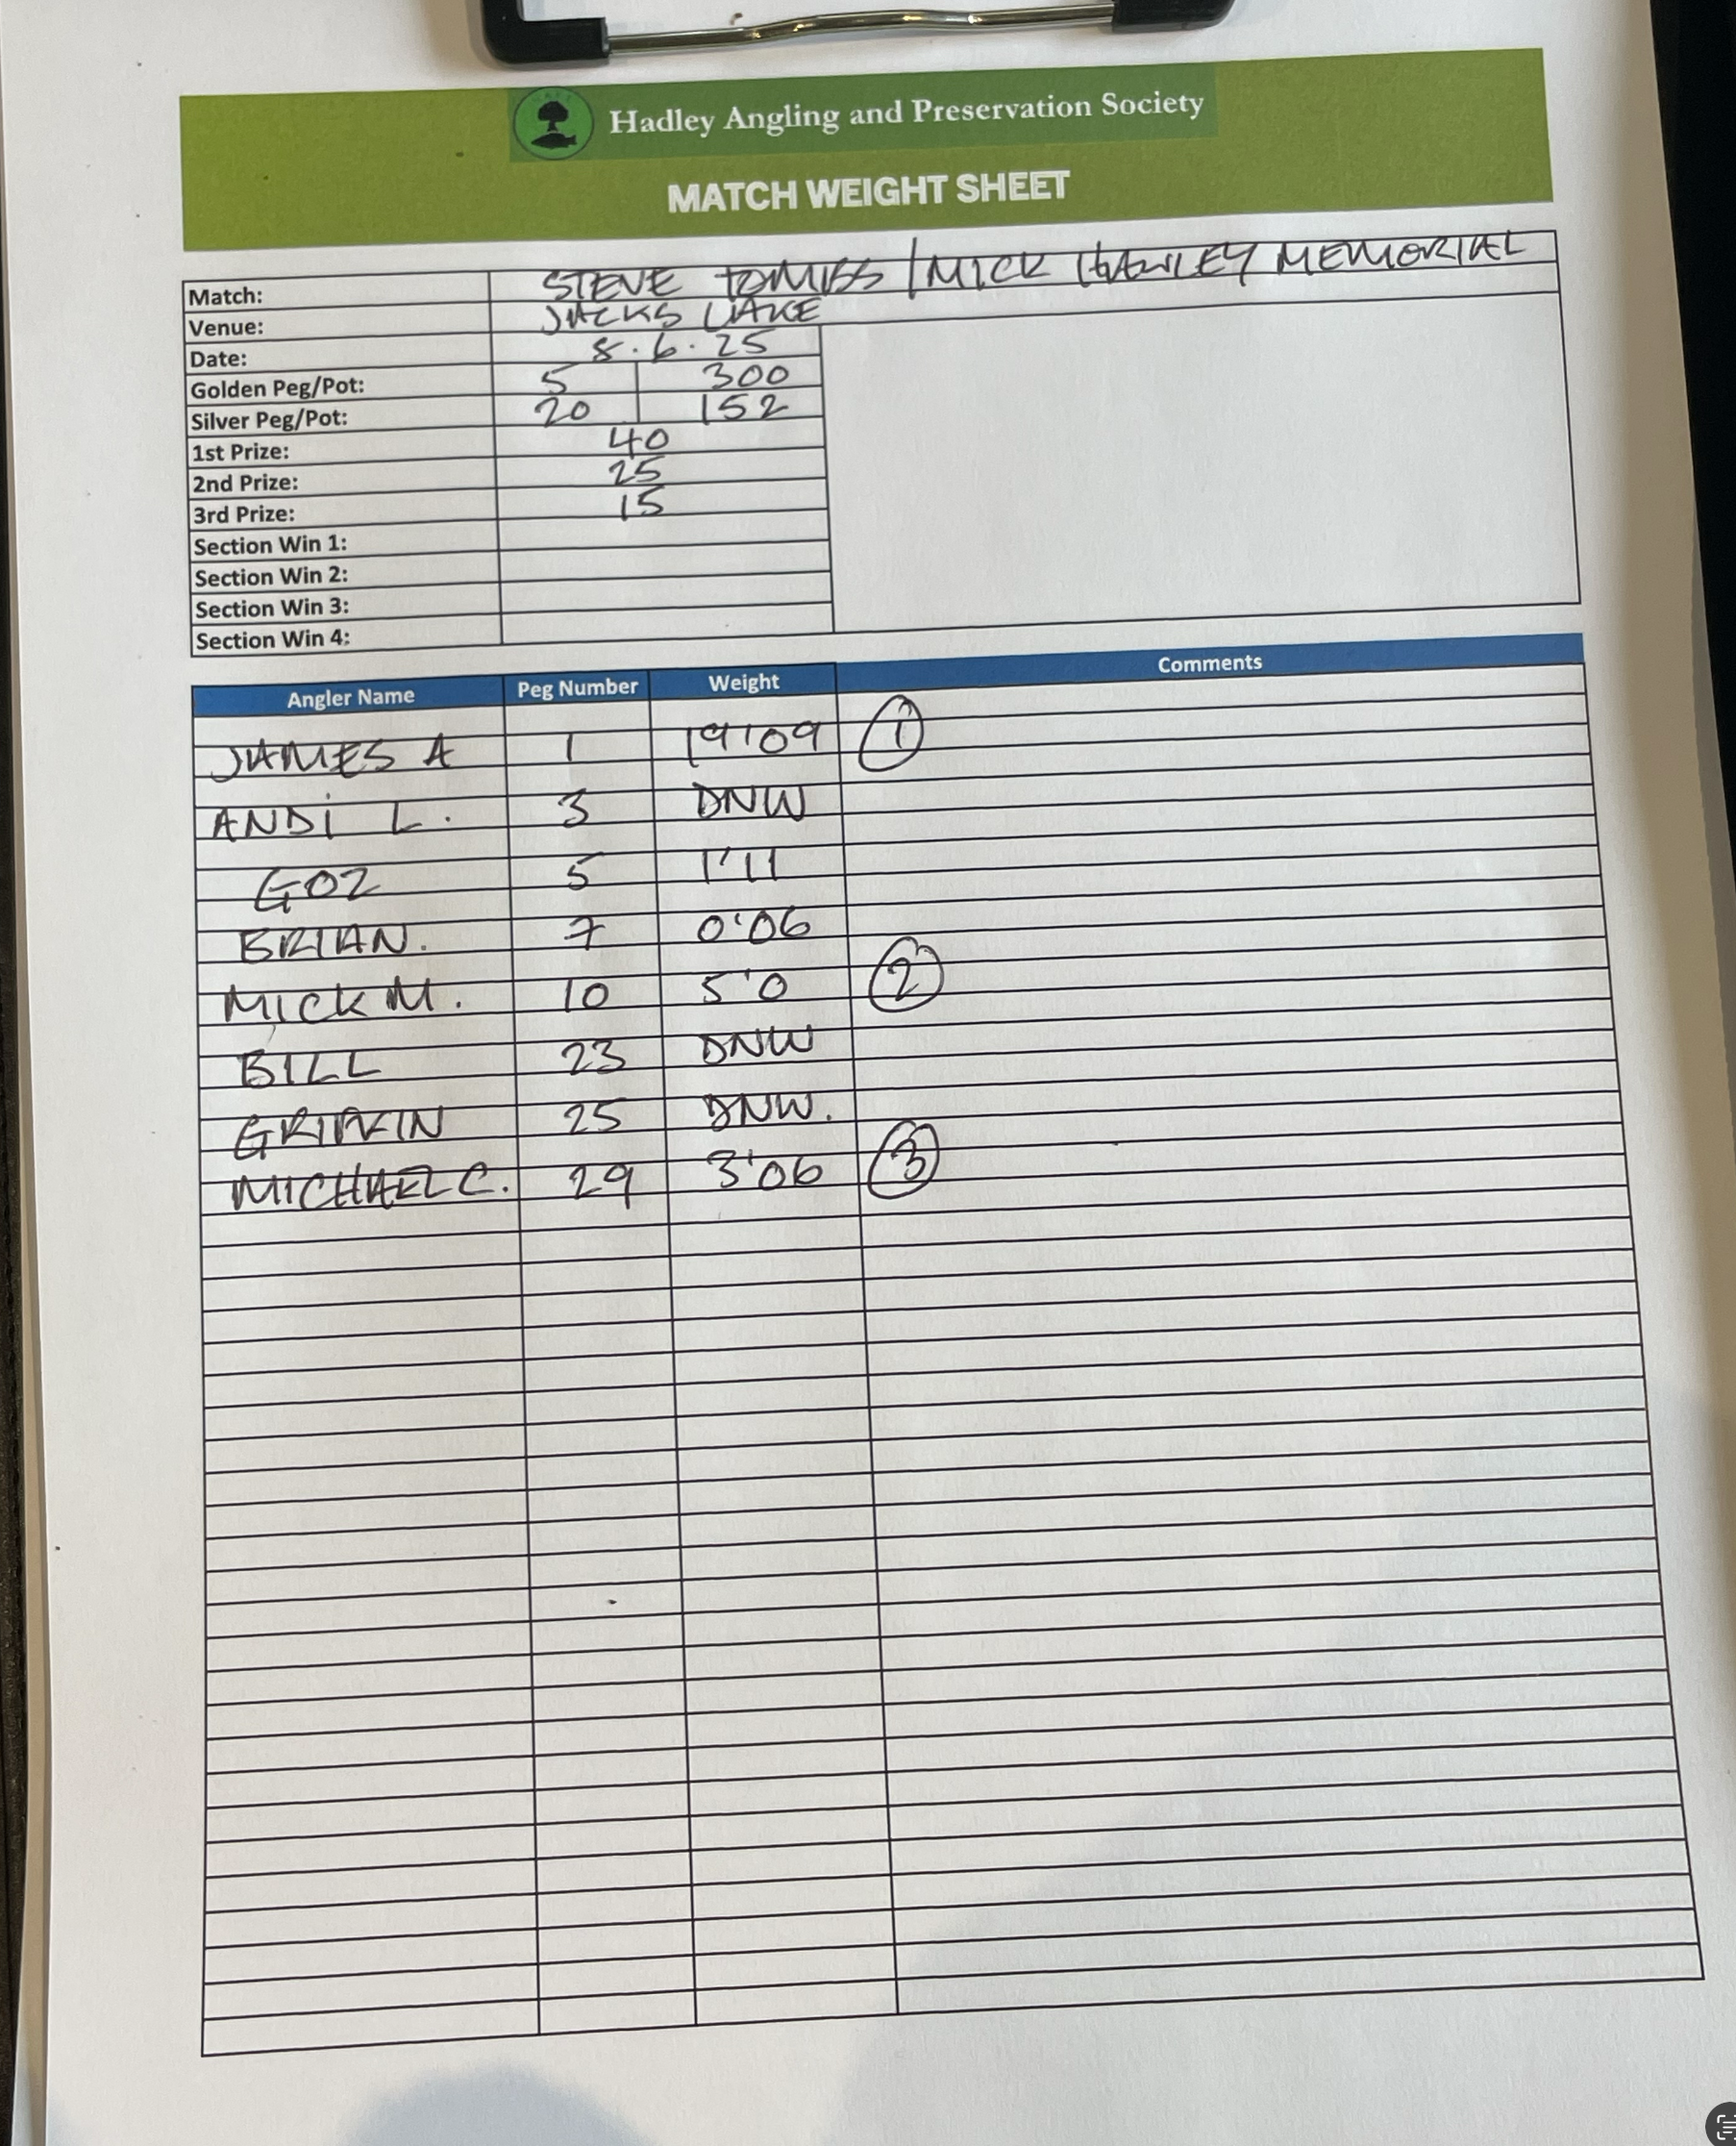 Hadley Angling and Preservation Society
MATCH WEIGHT SHEET
Match: STEVE / MICK HAWLEY MEMORIAL
Venue: JACKS LAKE
Date: 8.6.25
Golden Peg/Pot: 5 300
Silver Peg/Pot: 20 152
1st Prize: 40
2nd Prize: 25
3rd Prize: 15
Section Win 1:
Section Win 2:
Section Win 3:
Section Win 4:
Angler Name Peg Number Weight Comments
JAMES A 1 19'09 1
ANDi L. 3 DNW
GOZ 5 1'11
BRIAN. 7 0'06
MICK M. 10 5'0 2
BILL 23 DNW
25 DNW.
MICHAEL C. 29 3'06 3